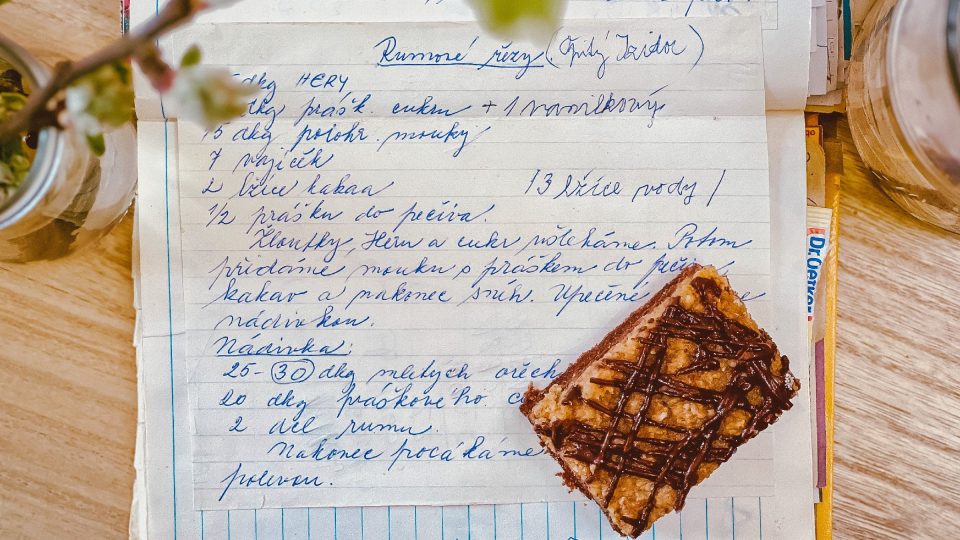 Rumové řezy (Opitý Izidor)
dkg HERY
dkg prášk. cukru + 1 vanilkový
15 dkg polohr. mouky
7 vajíček
2 lžíce kakaa /3 lžíce vody/
1/2 prášku do pečiva.
Žloutky, Heru a cukr ušleháme. Potom
přidáme mouku s práškem do
kakao a nakonec sníh. Upečené
nádivkou.
Nádivka:
25-30 dkg mletých ořech
20 dkg práškového
2 del rumu.
Nakonec pocákáme
polevou.
Dr.Oetker